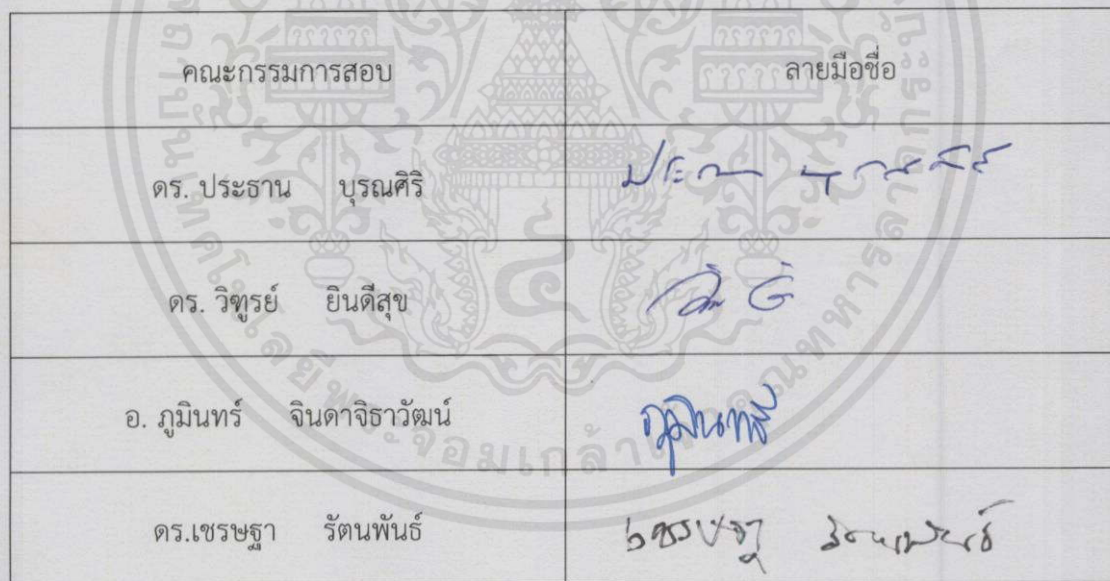 คณะกรรมการสอบ ลายมือชื่อ
ดร. ประธาน บุรณศิริ
ดร. วิฑูรย์ ยินดีสุข
อ. ภูมินทร์ จินดาจิธาวัฒน์ ภูมินทร์
ดร.เชรษฐา รัตนพันธ์ เชรษฐา รัตนพันธ์